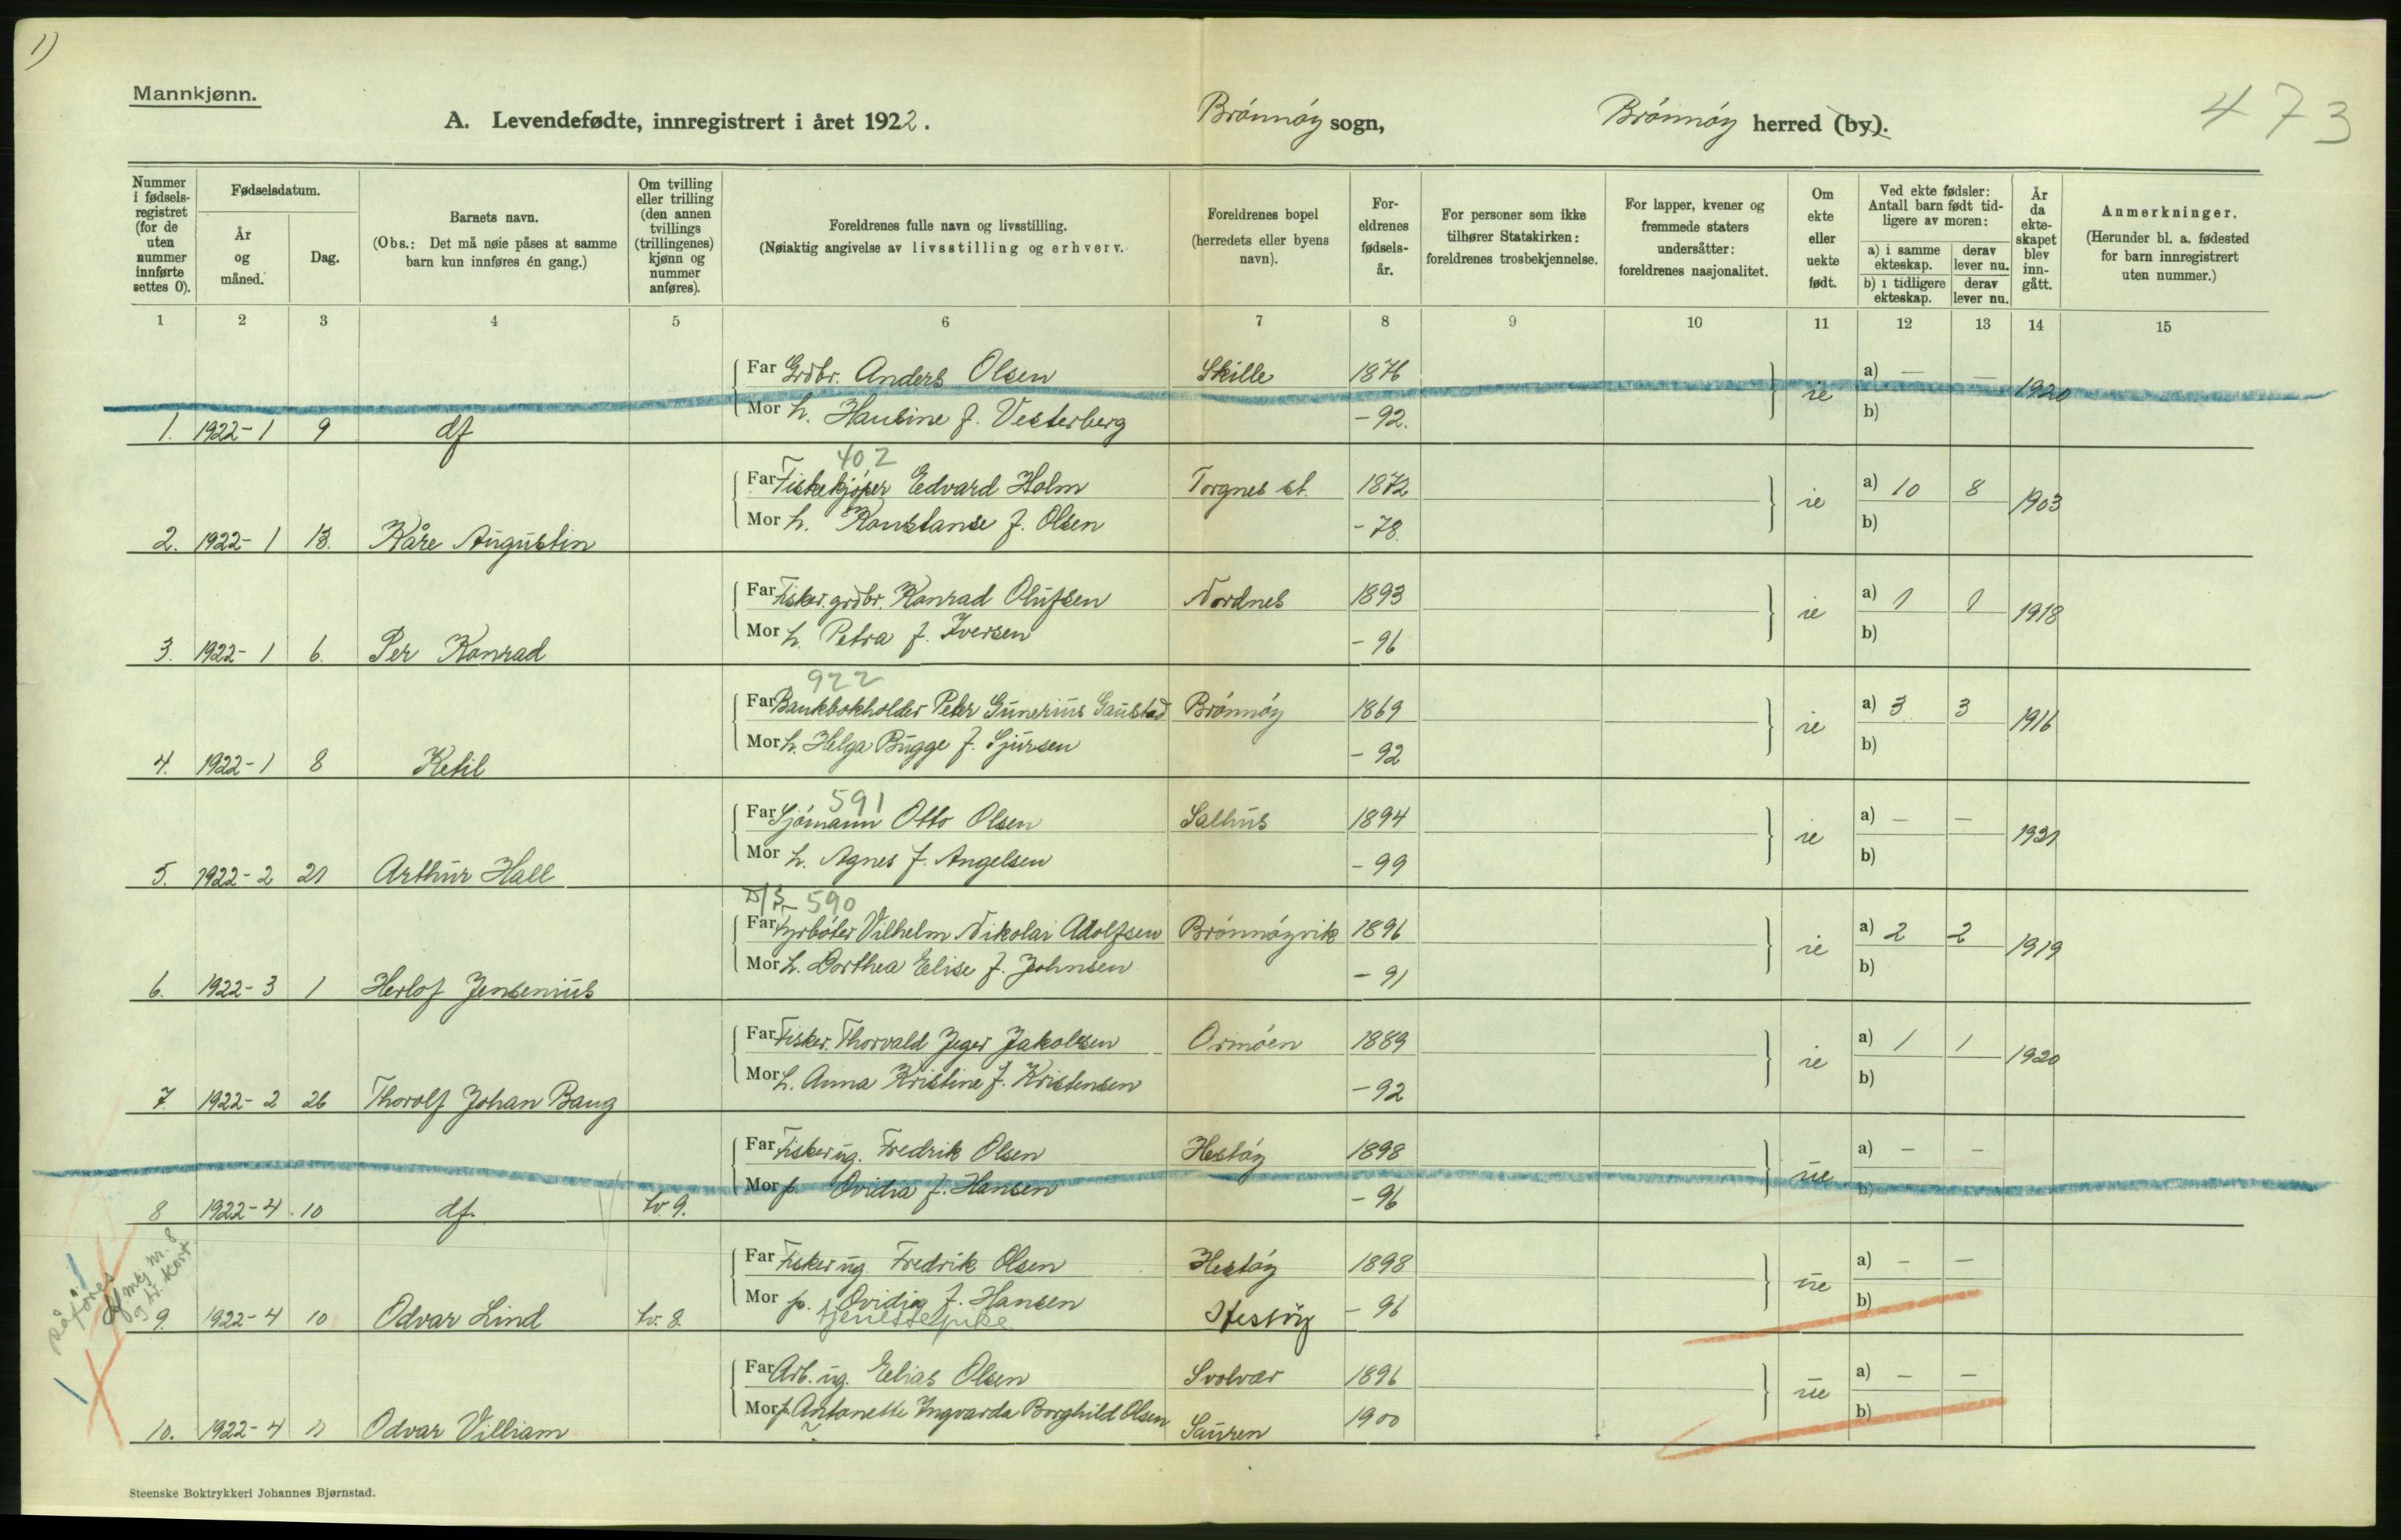 1)
Mannkjønn.
A. Levendefødte, innregistrert i året 1922.
Brønnøy sogn,
Brønnøy herred (by).
473
Nummer i fødsels-registret (for de uten nummer innførte settes 0).
Fødselsdatum.
År og måned.
Dag.
Barnets navn.
(Obs.: Det må nøie påses at samme barn kun innføres én gang.)
Om tvilling eller trilling (den annen tvillings (trillingenes) kjønn og nummer anføres).
Foreldrenes fulle navn og livsstilling.
(Nøiaktig angivelse av livsstilling og erhverv.
Foreldrenes bopel (herredets eller byens navn).
For-eldrenes fødsels-år.
For personer som ikke tilhører Statskirken: foreldrenes trosbekjennelse.
For lapper, kvener og fremmede staters undersåtter: foreldrenes nasjonalitet.
Om ekte eller uekte født.
Ved ekte fødsler: Antall barn født tid-ligere av moren:
a) i samme ekteskap.
derav lever nu.
b) i tidligere ekteskap.
derav lever nu.
År da ekte-skapet blev inn-gått.
Anmerkninger.
(Herunder bl. a. fødested for barn innregistrert uten nummer.)
1 2 3 4 5 6 7 8 9 10 11 12 13 14 15
Far Grdbr. Anders Olsen Skille 1876 ie a) — — 1920
Mor h. Hansine f. Vesterberg - 92. b)
1. 1922-1 9 df
402
Far Fiskekjøper Edvard Holm Torgnes st. 1872 ie a) 10 8 1903
Mor h. Konstanse f. Olsen - 78. b)
2. 1922-1 13. Kåre Augustin
Far Fisker. grdbr. Konrad Olufsen Nordnes 1893 ie a) 1 1 1918
Mor h. Petra f. Iversen - 96 b)
3. 1922-1 6. Per Konrad
922
Far Bankbokholder Peter Gunerius Gaustad Brønnøy 1869 ie a) 3 3 1916
Mor h. Helga Bugge f. Sjursen - 92 b)
4. 1922-1 8 Ketil
591
Far Sjømann Otto Olsen Salhus 1894 ie a) — — 1921
Mor h. Agnes f. Angelsen - 99 b)
5. 1922-2 21 Arthur Hall
D/S - 590
Far Fyrbøter Vilhelm Nikolai Adolfsen Brønnøyvik 1896 ie a) 2 2 1919
Mor h. Dorthea Elise f. Johnsen - 91 b)
6. 1922-3 1 Herlof Jensenius
Far Fisker. Thorvald Jeger Jakobsen Ormøen 1889 ie a) 1 1 1920
Mor h. Anna Kristine f. Kristensen - 92 b)
7. 1922-2 26 Thorolf Johan Baug
Far Fisker ug. Fredrik Olsen Hestøy 1898 ue a) — —
Mor p. Ovidia f. Hansen - 96 b)
8 1922-4 10 df. tv. 9.
påføres df mkj nr. 8 og tv. kort
Far Fisker ug. Fredrik Olsen Hestøy 1898 ue a) — —
Mor p. Ovidia f. Hansen Hestøy - 96 b)
tjenestepike
9. 1922-4 10 Odvar Lind tv. 8.
Far Arb. ug. Elias Olsen Svolvær 1896 ue a) — —
Mor p. Antonette Ingvarda Borghild Olsen Sauren 1900 b)
10. 1922-4 11 Odvar Villiam
Steenske Boktrykkeri Johannes Bjørnstad.